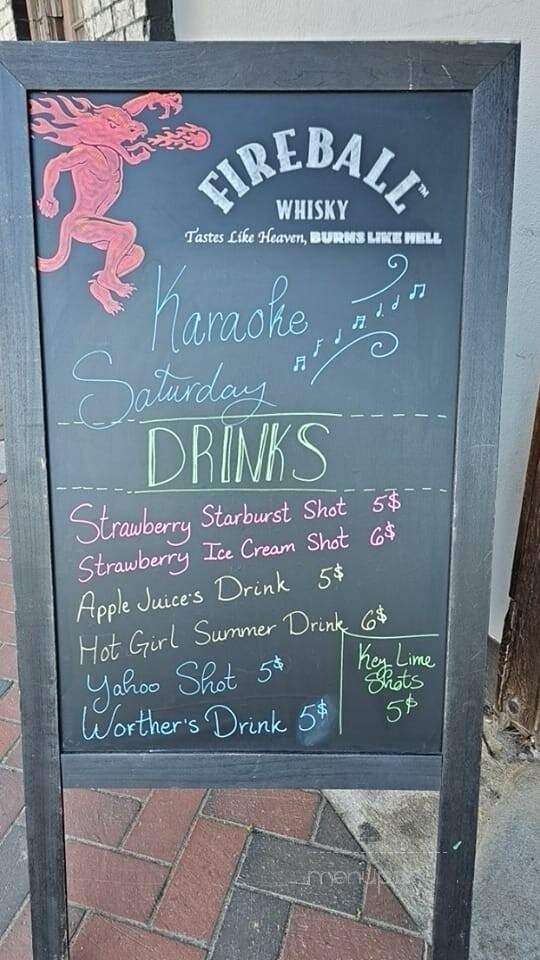 FIREBALL™
WHISKY
Tastes Like Heaven, BURNS LIKE HELL
Karaoke
Saturday
DRINKS
Strawberry Starburst Shot 5$
Strawberry Ice Cream Shot 6$
Apple Juice's Drink 5$
Hot Girl Summer Drink 6$
Yahoo Shot 5$
Worther's Drink 5$
Key Lime
Shots
5$